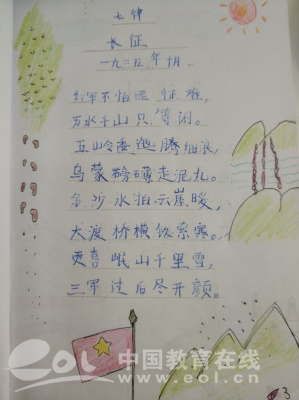 七律
长征
一九三五年十月
红军不怕远征难，
万水千山只等闲。
五岭逶迤腾细浪，
乌蒙磅礴走泥丸。
金沙水拍云崖暖，
大渡桥横铁索寒。
更喜岷山千里雪，
三军过后尽开颜。
eol 中国教育在线
www.eol.cn
3